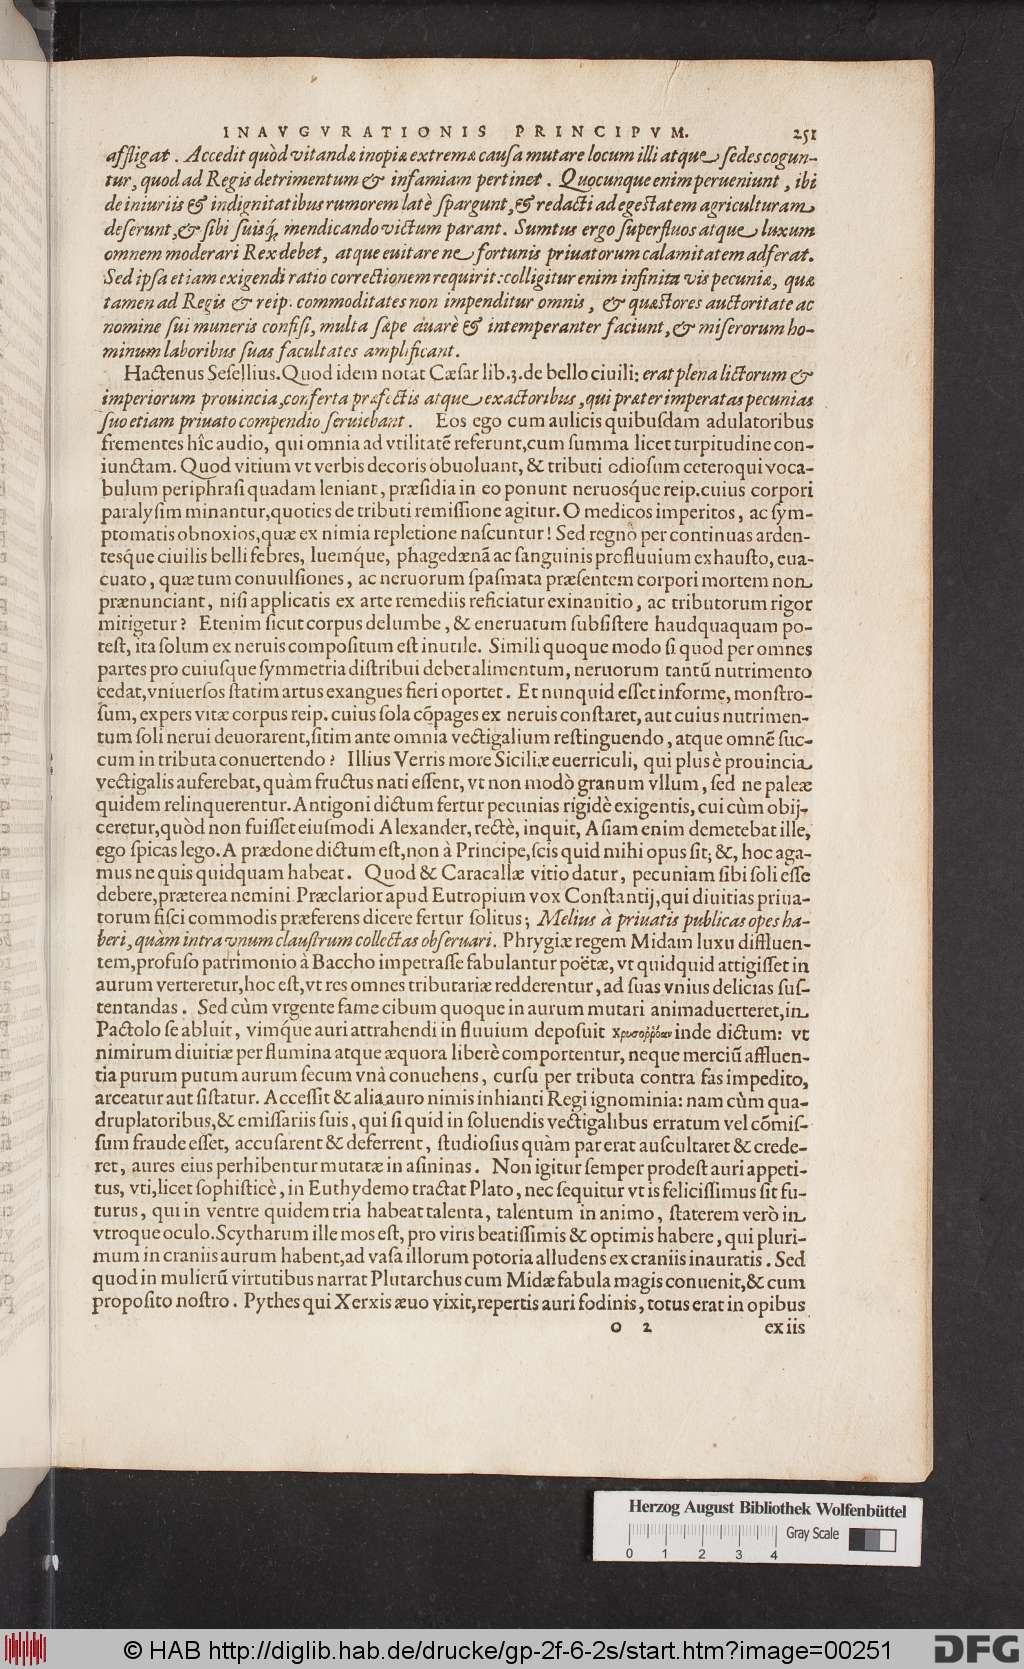 INAVGVRATIONIS PRINCIPVM. 251
affligat. Accedit quòd vitandæ inopiæ extremæ causa mutare locum illi atque sedes cogun-
tur, quod ad Regis detrimentum & infamiam pertinet. Quocunque enim perueniunt, ibi
de iniuriis & indignitatibus rumorem latè spargunt, & redacti ad egestatem agriculturam
deserunt, & sibi suisq́; mendicando victum parant. Sumtus ergo superfluos atque luxum
omnem moderari Rex debet, atque euitare ne fortunis priuatorum calamitatem adferat.
Sed ipsa etiam exigendi ratio correctionem requirit: colligitur enim infinita vis pecuniæ, quæ
tamen ad Regis & reip. commoditates non impenditur omnis, & quæstores auctoritate ac
nomine sui muneris confisi, multa sæpe auarè & intemperanter faciunt, & miserorum ho-
minum laboribus suas facultates amplificant.
Hactenus Sesellius. Quod idem notat Cæsar lib. 3. de bello ciuili: erat plena lictorum &
imperiorum prouincia, conferta præfectis atque exactoribus, qui præter imperatas pecunias
suo etiam priuato compendio seruiebant. Eos ego cum aulicis quibusdam adulatoribus
frementes hîc audio, qui omnia ad vtilitatē referunt, cum summa licet turpitudine con-
iunctam. Quod vitium vt verbis decoris obuoluant, & tributi odiosum ceteroqui voca-
bulum periphrasi quadam leniant, præsidia in eo ponunt neruosq́ue reip. cuius corpori
paralysim minantur, quoties de tributi remissione agitur. O medicos imperitos, ac sym-
ptomatis obnoxios, quæ ex nimia repletione nascuntur! Sed regno per continuas arden-
tesq́ue ciuilis belli febres, luemq́ue, phagedænā ac sanguinis profluuium exhausto, eua-
cuato, quæ tum conuulsiones, ac neruorum spasmata præsentem corpori mortem non
prænunciant, nisi applicatis ex arte remediis reficiatur exinanitio, ac tributorum rigor
mitigetur? Etenim sicut corpus delumbe, & eneruatum subsistere haudquaquam po-
test, ita solum ex neruis compositum est inutile. Simili quoque modo si quod per omnes
partes pro cuiusque symmetria distribui debet alimentum, neruorum tantū nutrimento
cedat, vniuersos statim artus exangues fieri oportet. Et nunquid esset informe, monstro-
sum, expers vitæ corpus reip. cuius sola cōpages ex neruis constaret, aut cuius nutrimen-
tum soli nerui deuorarent, sitim ante omnia vectigalium restinguendo, atque omnē suc-
cum in tributa conuertendo? Illius Verris more Siciliæ euerriculi, qui plus è prouincia
vectigalis auferebat, quàm fructus nati essent, vt non modò granum vllum, sed ne paleæ
quidem relinquerentur. Antigoni dictum fertur pecunias rigidè exigentis, cui cùm obij-
ceretur, quòd non fuisset eiusmodi Alexander, rectè, inquit, Asiam enim demetebat ille,
ego spicas lego. A prædone dictum est, non à Principe, scis quid mihi opus sit; &, hoc aga-
mus ne quis quidquam habeat. Quod & Caracallæ vitio datur, pecuniam sibi soli esse
debere, præterea nemini Præclarior apud Eutropium vox Constantij, qui diuitias priua-
torum fisci commodis præferens dicere fertur solitus; Melius à priuatis publicas opes ha-
beri, quàm intra vnum claustrum collectas obseruari. Phrygiæ regem Midam luxu diffluen-
tem, profuso patrimonio à Baccho impetrasse fabulantur poëtæ, vt quidquid attigisset in
aurum verteretur, hoc est, vt res omnes tributariæ redderentur, ad suas vnius delicias sus-
tentandas. Sed cùm vrgente fame cibum quoque in aurum mutari animaduerteret, in
Pactolo se abluit, vimq́ue auri attrahendi in fluuium deposuit χρυσοῤῥόαν inde dictum: vt
nimirum diuitiæ per flumina atque æquora liberè comportentur, neque merciū affluen-
tia purum putum aurum secum vnà conuehens, cursu per tributa contra fas impedito,
arceatur aut sistatur. Accessit & alia auro nimis inhianti Regi ignominia: nam cùm qua-
druplatoribus, & emissariis suis, qui si quid in soluendis vectigalibus erratum vel cōmis-
sum fraude esset, accusarent & deferrent, studiosius quàm par erat auscultaret & crede-
ret, aures eius perhibentur mutatæ in asininas. Non igitur semper prodest auri appeti-
tus, vti, licet sophisticè, in Euthydemo tractat Plato, nec sequitur vt is felicissimus sit fu-
turus, qui in ventre quidem tria habeat talenta, talentum in animo, staterem verò in
vtroque oculo. Scytharum ille mos est, pro viris beatissimis & optimis habere, qui pluri-
mum in craniis aurum habent, ad vasa illorum potoria alludens ex craniis inauratis. Sed
quod in mulierū virtutibus narrat Plutarchus cum Midæ fabula magis conuenit, & cum
proposito nostro. Pythes qui Xerxis æuo vixit, repertis auri fodinis, totus erat in opibus
O 2 exiis
Herzog August Bibliothek Wolfenbüttel
Gray Scale
0 1 2 3 4
© HAB http://diglib.hab.de/drucke/gp-2f-6-2s/start.htm?image=00251
DFG